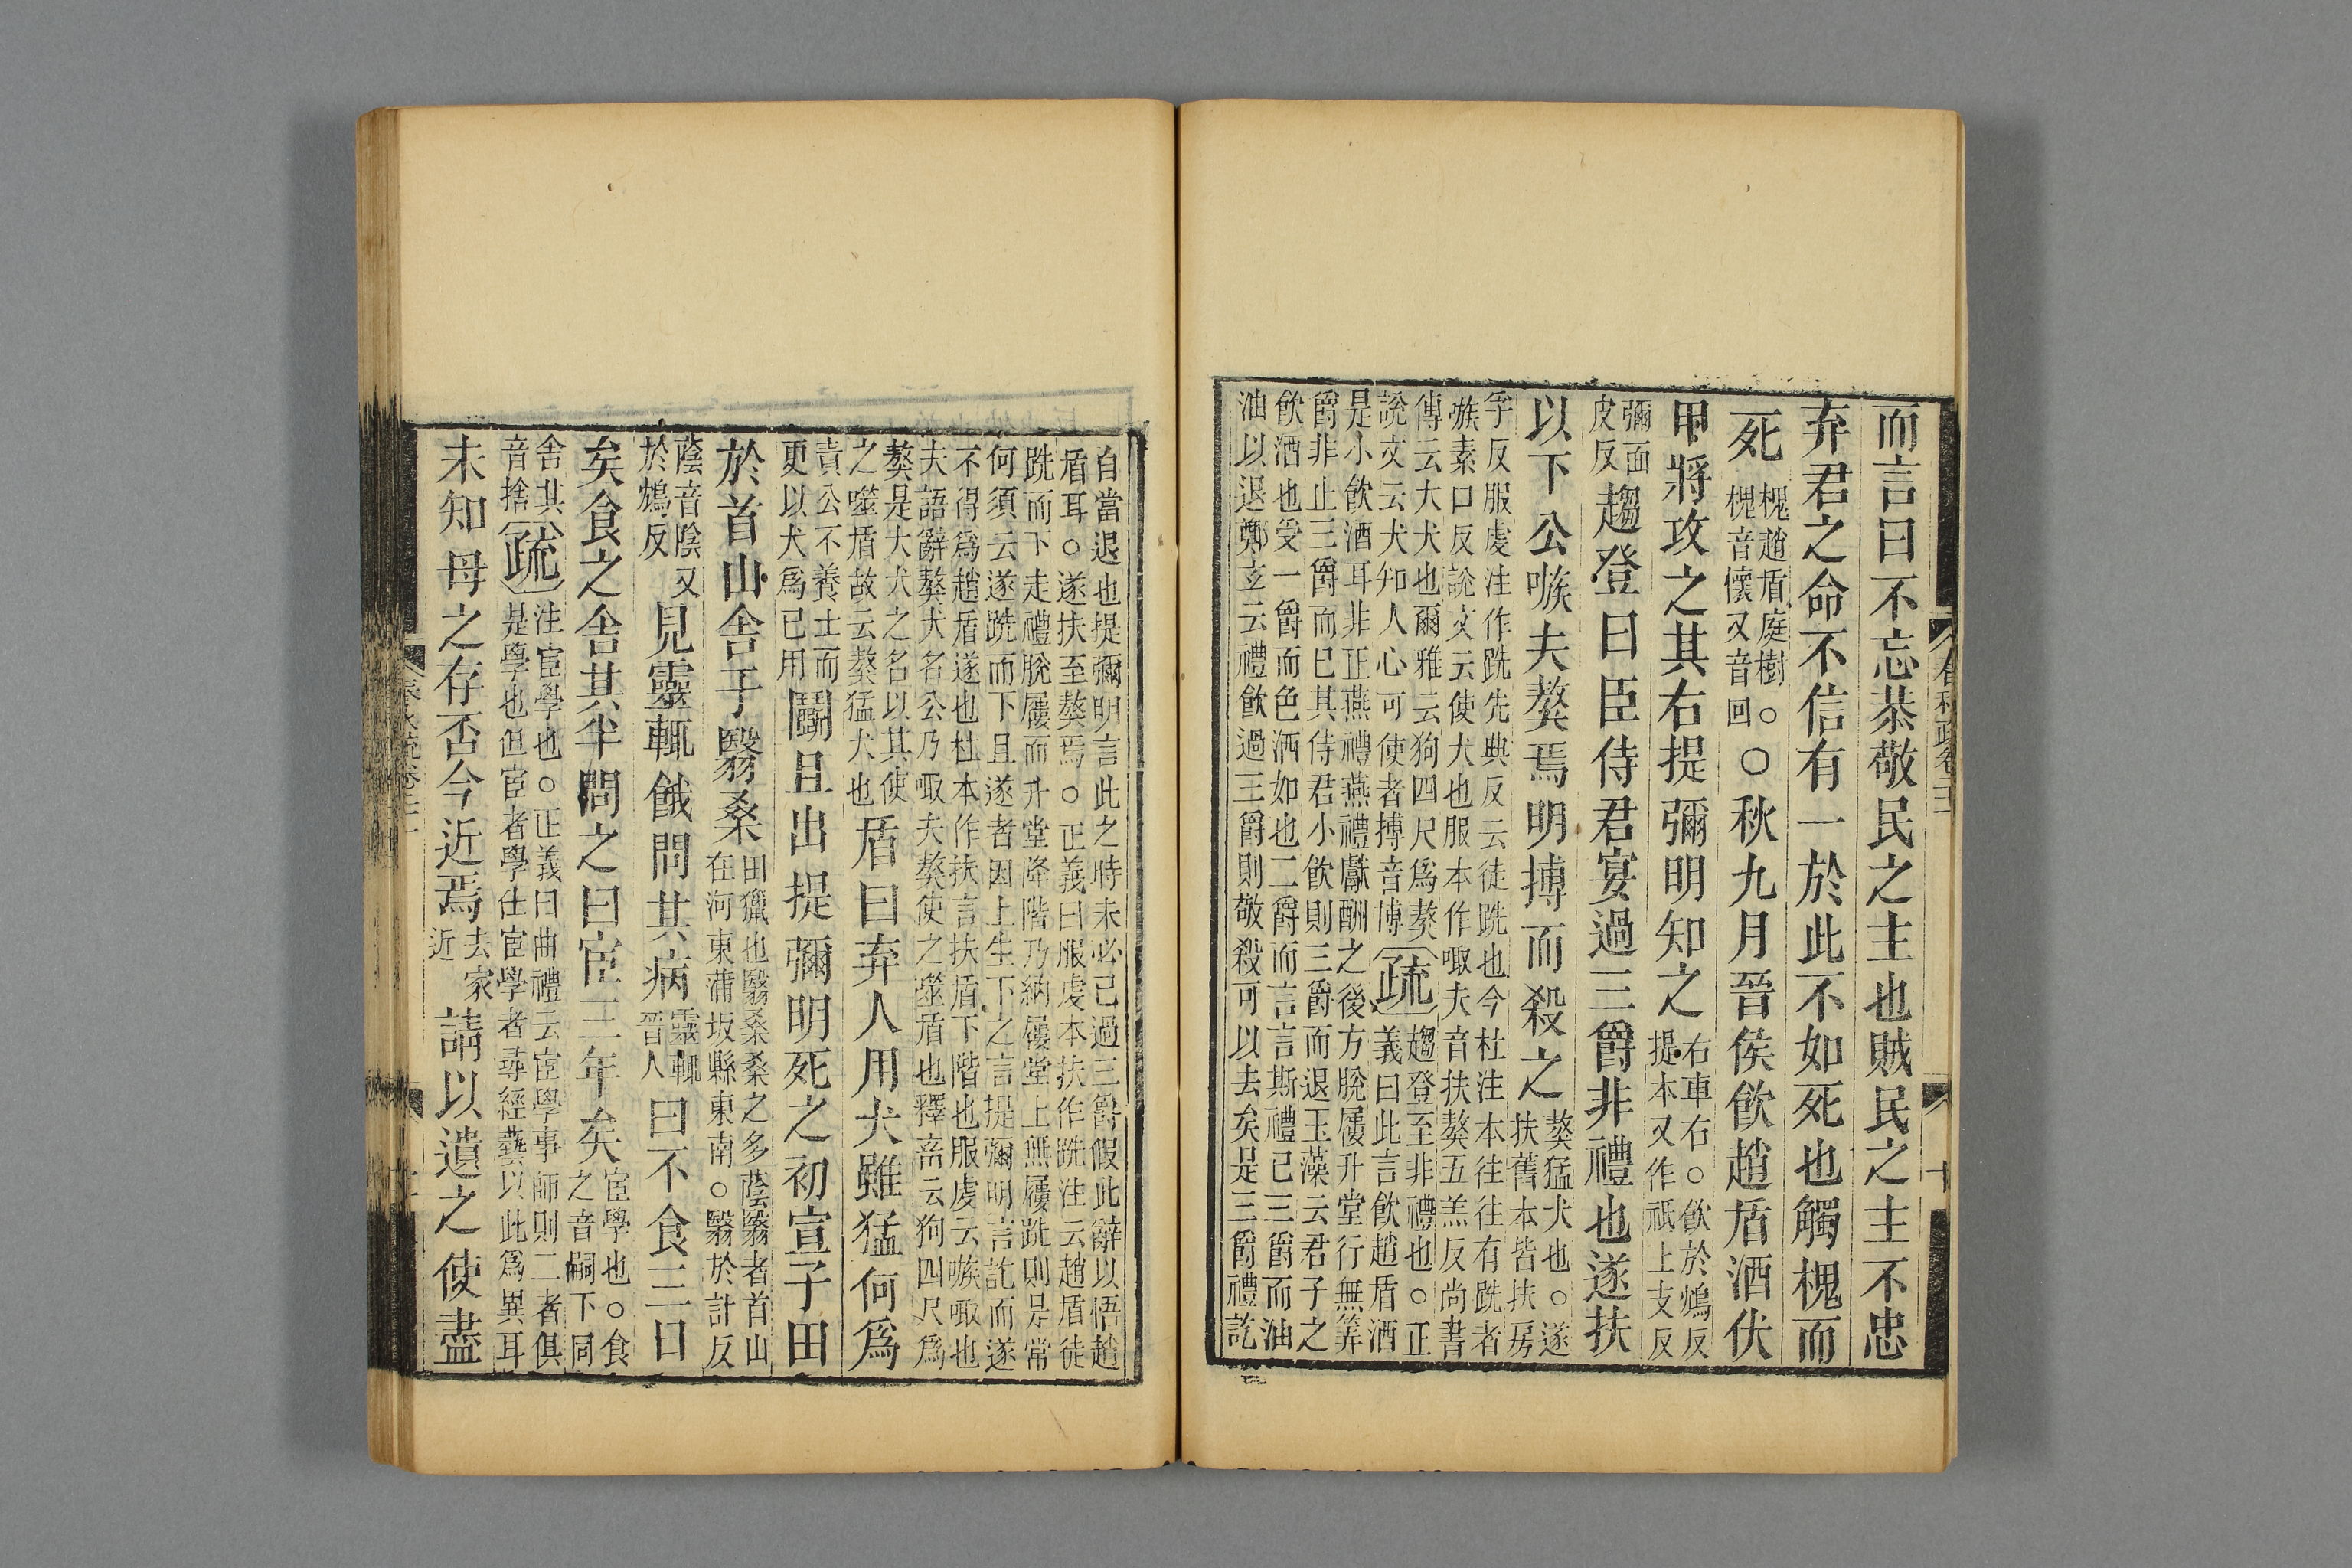 而言曰不忘恭敬民之主也賊民之主不忠
弃君之命不信有一於此不如死也觸槐而
死槐趙盾庭樹○
槐音懷又音回○秋九月晉侯飲趙盾酒伏
甲將攻之其右提彌明知之右車右○飲於鴆反
提本又作祇上支反
彌面
皮反趨登曰臣侍君宴過三爵非禮也遂扶
以下公嗾夫獒焉明搏而殺之獒猛犬也○遂
扶舊本皆扶房
孚反服虔注作跣先典反云徒跣也今杜注本往往有跣者
嗾素口反說文云使犬也服本作㖩夫音扶獒五羔反尚書
傳云大犬也爾雅云狗四尺爲獒
說文云犬知人心可使者搏音博疏趨登至非禮也○正
義曰此言飲趙盾酒
是小飲酒耳非正燕禮燕禮獻酬之後方脫屨升堂行無筭
爵非止三爵而已其侍君小飲則三爵而退玉藻云君子之
飲酒也受一爵而色洒如也二爵而言言斯禮已三爵而油
油以退鄭玄云禮飲過三爵則敬殺可以去矣是三爵禮訖
自當退也提彌明言此之時未必已過三爵假此辭以悟趙
盾耳○遂扶至獒焉○正義曰服虔本扶作跣注云趙盾徒
跣而下走禮脫屨而升堂降階乃納屨堂上無屨跣則是常
何須云遂跣而下且遂者因上生下之言提彌明言訖而遂
不得爲趙盾遂也杜本作扶言扶盾下階也服虔云嗾㖩也
夫語辭獒犬名公乃㖩夫獒使之噬盾也釋畜云狗四尺爲
獒是大犬之名以其使
之噬盾故云獒猛犬也盾曰弃人用犬雖猛何爲
責公不養士而
更以犬爲已用鬭且出提彌明死之初宣子田
於首山舍于翳桑田獵也翳桑桑之多蔭翳者首山
在河東蒲坂縣東南○翳於計反
蔭音陰又
於鴆反見靈輒餓問其病靈輒
晉人曰不食三日
矣食之舍其半問之曰宦三年矣宦學也○食
之音嗣下同
舍其
音捨疏注宦學也○正義曰曲禮云宦學事師則二者俱
是學也但宦者學仕宦學者尋經藝以此爲異耳
未知母之存否今近焉去家
近請以遺之使盡